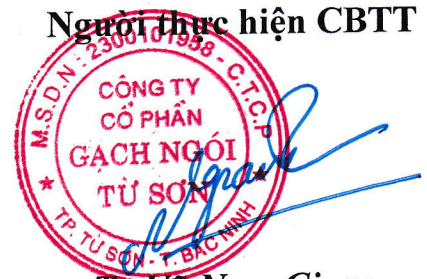 Người thực hiện CBTT
M.S.D.N: 2300101958 - C.T.C.P
CÔNG TY
CỔ PHẦN
GẠCH NGÓI
TỪ SƠN
TP. TỪ SƠN - T. BẮC NINH